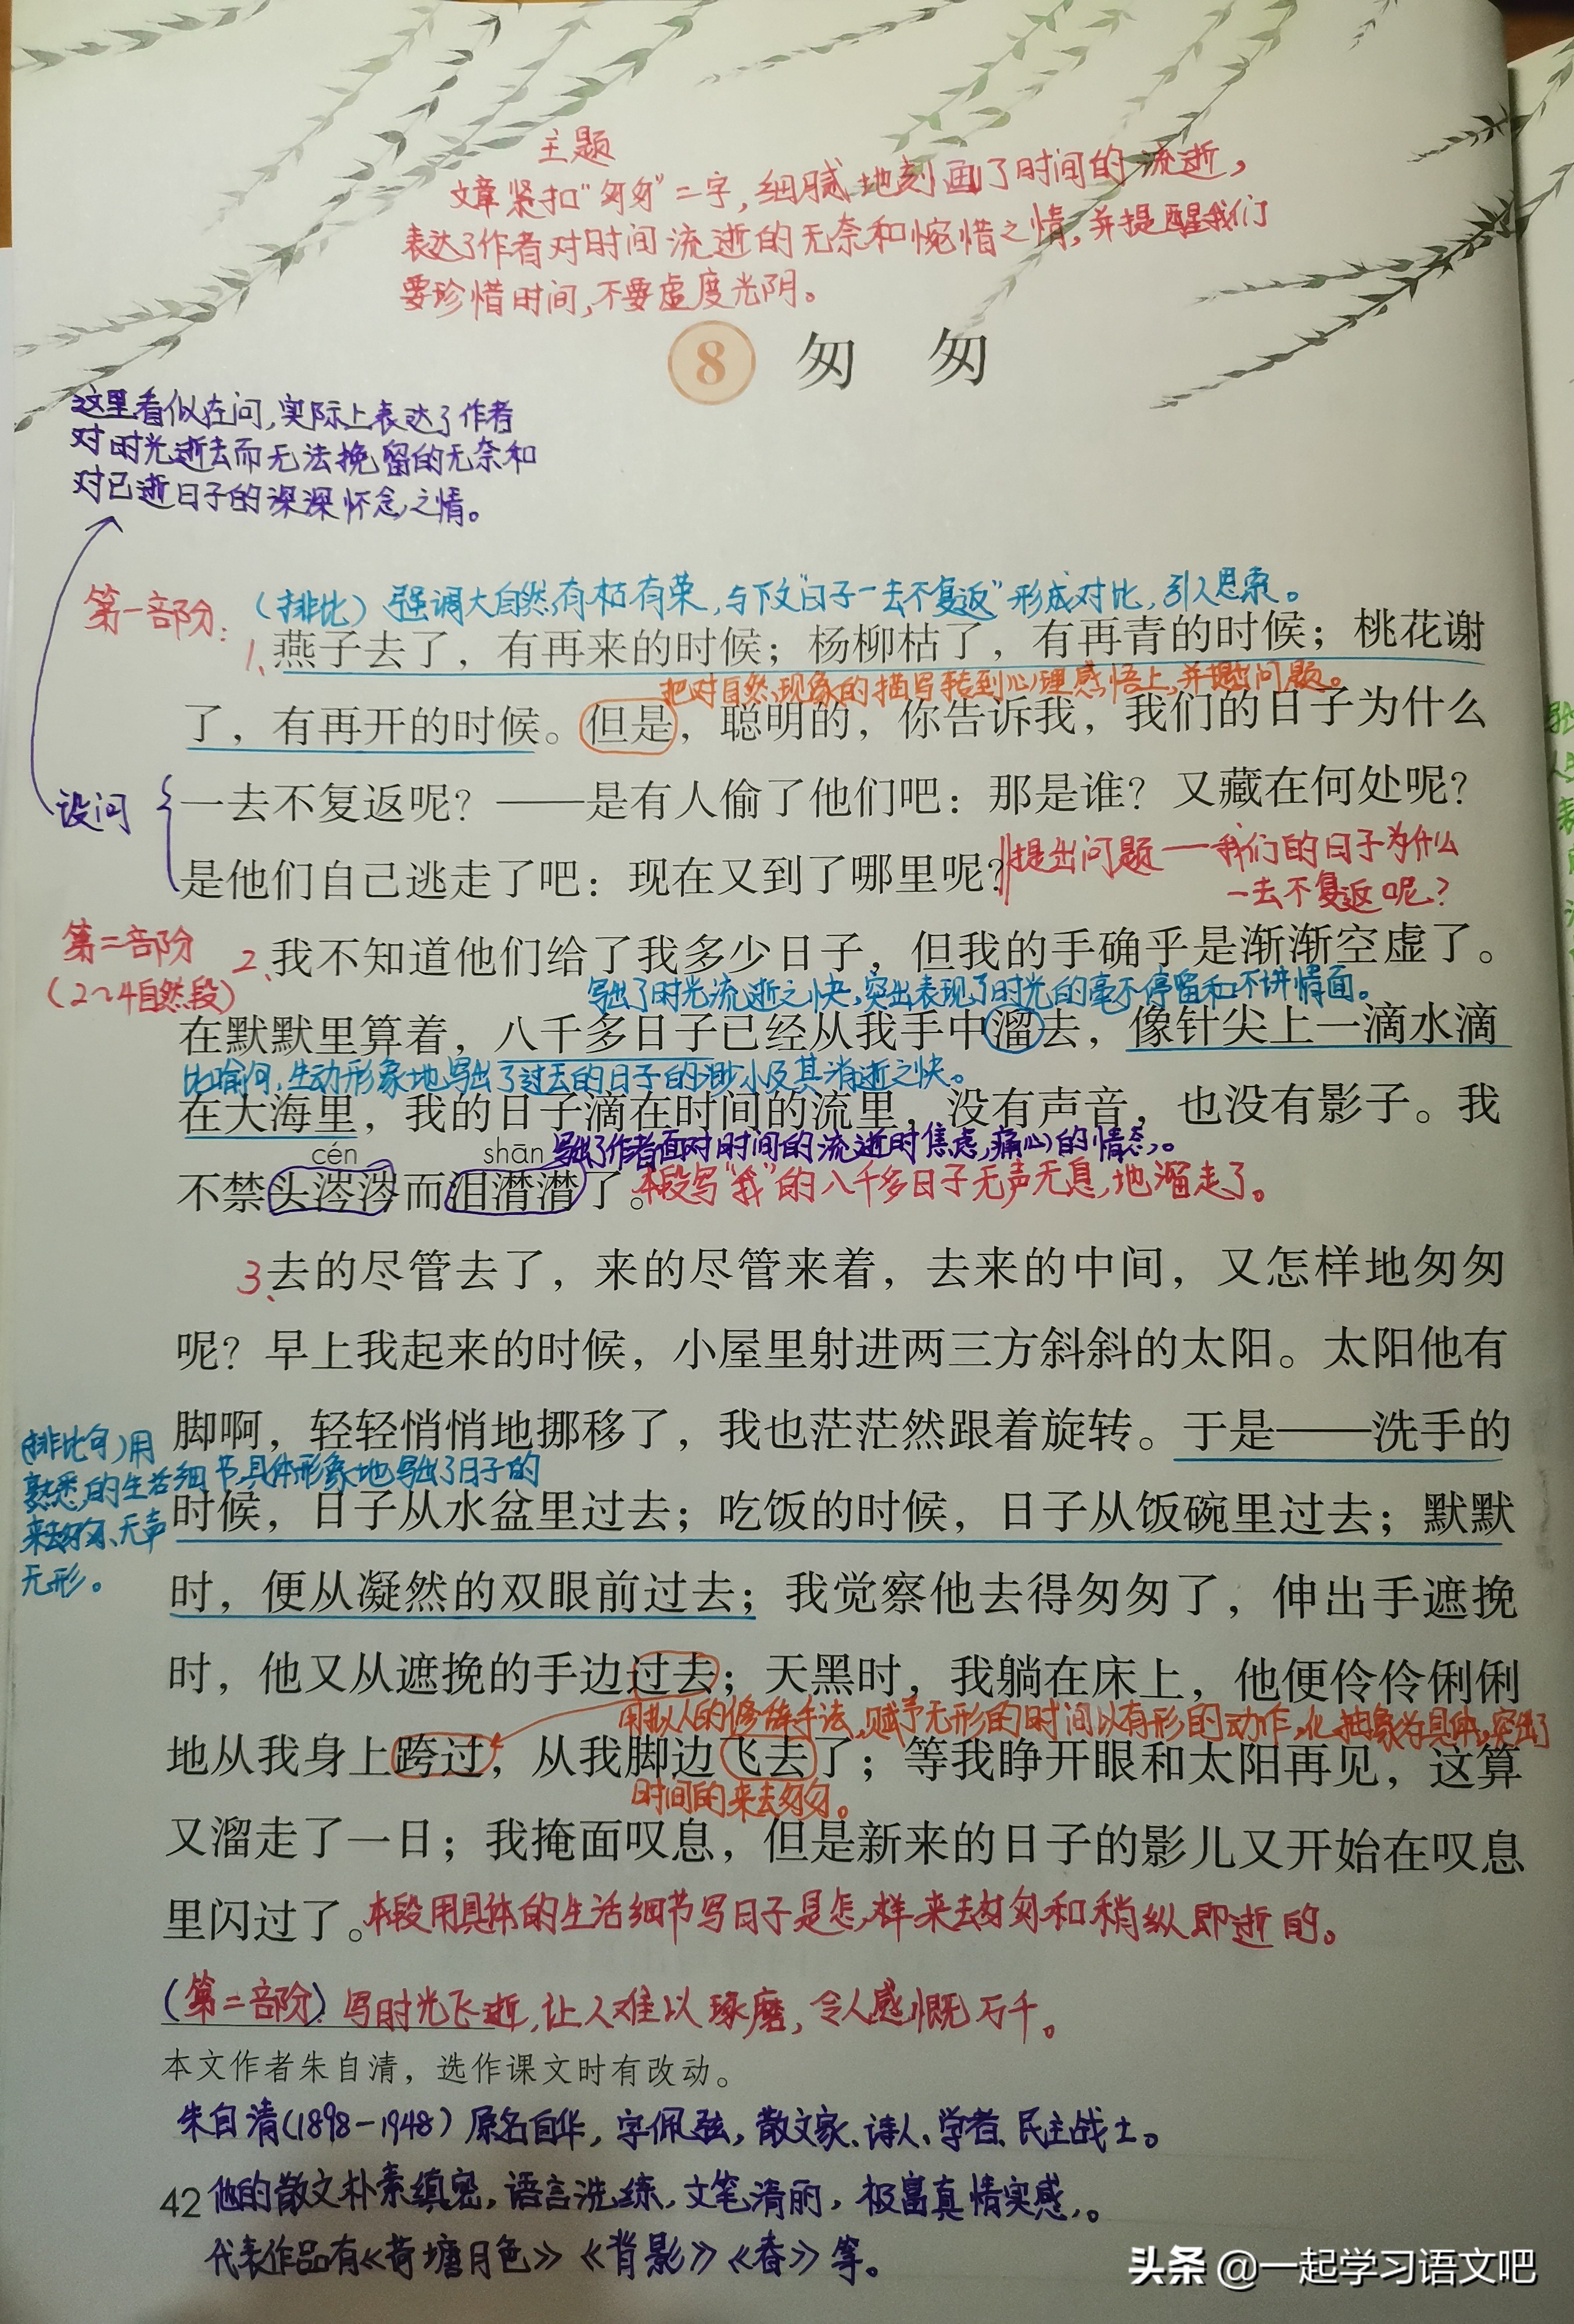 主题
文章紧扣“匆匆”二字，细腻地刻画了时间的流逝，
表达了作者对时间流逝的无奈和惋惜之情，并提醒我们
要珍惜时间，不要虚度光阴。
8 匆 匆
这里看似在问，实际上表达了作者
对时光逝去而无法挽留的无奈和
对已逝日子的深深怀念之情。
第一部分：
（排比）强调大自然有枯有荣，与下文“日子一去不复返”形成对比，引人思索。
1、燕子去了，有再来的时候；杨柳枯了，有再青的时候；桃花谢
把对自然现象的描写转到心理感悟上，并提出问题。
了，有再开的时候。但是，聪明的，你告诉我，我们的日子为什么
设问
一去不复返呢？——是有人偷了他们吧：那是谁？又藏在何处呢？
是他们自己逃走了吧：现在又到了哪里呢？
提出问题——我们的日子为什么
一去不复返呢？
第二部分
（2~4自然段）
2、我不知道他们给了我多少日子，但我的手确乎是渐渐空虚了。
写出了时光流逝之快，突出表现了时光的毫不停留和不讲情面。
在默默里算着，八千多日子已经从我手中溜去，像针尖上一滴水滴
比喻句，生动形象地写出了过去的日子的渺小及其消逝之快。
在大海里，我的日子滴在时间的流里，没有声音，也没有影子。我
cén shān
写出了作者面对时间的流逝时焦虑，痛心的情态。
不禁头涔涔而泪潸潸了。
本段写“我”的八千多日子无声无息地溜走了。
3、去的尽管去了，来的尽管来着，去来的中间，又怎样地匆匆
呢？早上我起来的时候，小屋里射进两三方斜斜的太阳。太阳他有
脚啊，轻轻悄悄地挪移了，我也茫茫然跟着旋转。于是——洗手的
（排比句）用
熟悉的生活细节具体形象地写出了日子的
来去匆匆、无声
无形。
时候，日子从水盆里过去；吃饭的时候，日子从饭碗里过去；默默
时，便从凝然的双眼前过去；我觉察他去得匆匆了，伸出手遮挽
时，他又从遮挽的手边过去；天黑时，我躺在床上，他便伶伶俐俐
用拟人的修辞手法，赋予无形的时间以有形的动作，化抽象为具体，突出了
地从我身上跨过，从我脚边飞去了；等我睁开眼和太阳再见，这算
时间的来去匆匆。
又溜走了一日；我掩面叹息，但是新来的日子的影儿又开始在叹息
里闪过了。
本段用具体的生活细节写日子是怎样来去匆匆和稍纵即逝的。
（第二部分）写时光飞逝，让人难以琢磨，令人感慨万千。
本文作者朱自清，选作课文时有改动。
朱自清（1898-1948）原名自华，字佩弦，散文家、诗人、学者、民主战士。
他的散文朴素缜密，语言洗练，文笔清丽，极富真情实感。
42
代表作品有《荷塘月色》《背影》《春》等。
头条 @一起学习语文吧